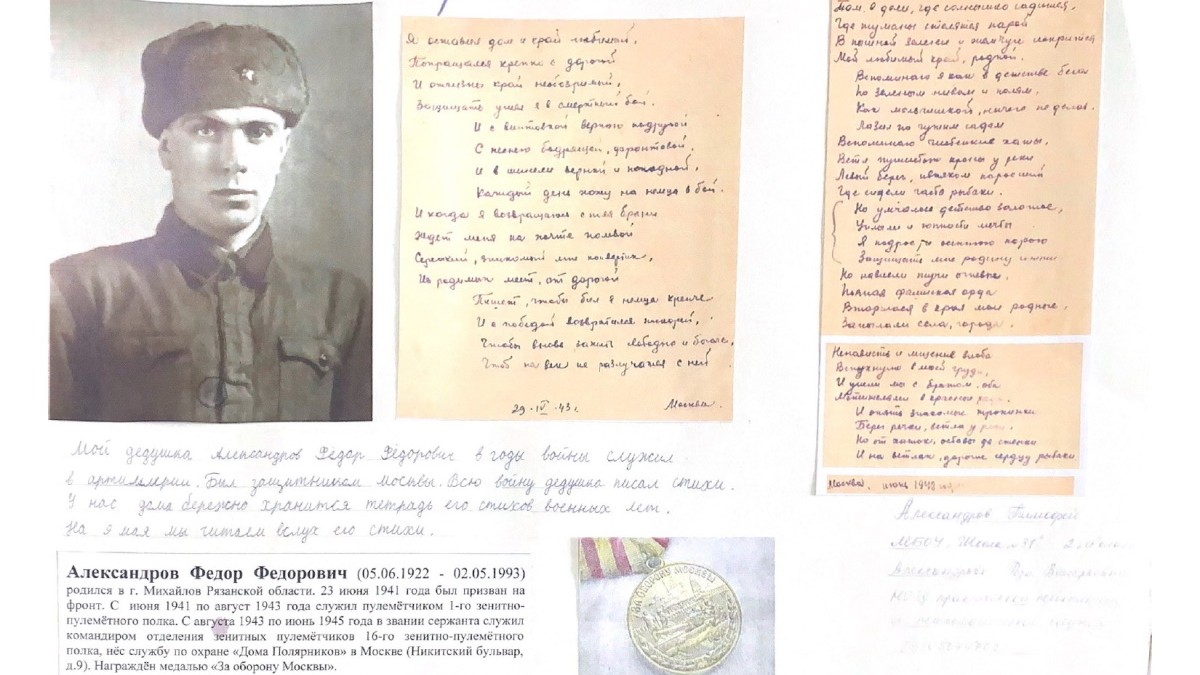 Я оставил дом и край любимый,
Попращался крепко с дорогой
И отчизны край необозримый,
Защищать ушел я в смертный бой.
И с винтовкой верною подругой
С песнею бодрящей, фронтовой.
И в шинели верной и походной,
Каждый день хожу на немца в бой.
И когда я возвращаюсь с
Ждет меня на почте полевой
Серенький, знакомый мне конвертик,
Из родимых мест, от дорогой
Пишет, чтобы бил я немца крепче
И с победой возвратился поскорей,
Чтобы вновь зажить свободно и богаче,
Чтоб на век не разлучался с ней
29 · IV · 43 г. Москва.
Там, где солнышко садится,
Где туманы стелятся парой
В пышной зелени и жемчуге
Мой любимый край, родной.
Вспоминаю я как в детстве бегал
По зеленым нивам и полям,
Как мальчишкой, ничего не делав.
Лазил по чужим садам
Вспоминаю хаты,
Ветл пушистых кроны у реки
Левый берег, ивняком поросший
Где сидели часто рыбаки.
Но умчалось детство золотое,
Уплыли и юности мечты
Я подрос
Защищать мне родину
Но нависли тучи огневые.
Пьяная фашистская орда
Вторглася в края мои родные,
Запылали села, города.
Ненависть и мщение злоба
Вспыхнуло в моей груди,
И ушли мы с братом оба
в красные
И опять знакомые тропинки
Берег речки, ветла у реки
Но от хаток, остовы да стенки
И на ветлах, дорогие сердцу рыбаки
Москва. июнь 1942
Мой дедушка Александров Фёдор Фёдорович в годы войны служил
в артиллерии. Был защитником Москвы. Всю войну дедушка писал стихи.
У нас дома бережно хранится тетрадь его стихов военных лет.
На 9 мая мы читаем вслух его стихи.
Александров Тимофей
МБОУ "Школа №31" 2
Александров Федор Федорович (05.06.1922 - 02.05.1993)
родился в г. Михайлов Рязанской области. 23 июня 1941 года был призван на
фронт. С июня 1941 по август 1943 года служил пулемётчиком 1-го зенитно-
пулемётного полка. С августа 1943 по июнь 1945 года в звании сержанта служил
командиром отделения зенитных пулемётчиков 16-го зенитно-пулемётного
полка, нёс службу по охране «Дома Полярников» в Москве (Никитский бульвар,
д.9). Награждён медалью «За оборону Москвы».
ЗА ОБОРОНУ МОСКВЫ